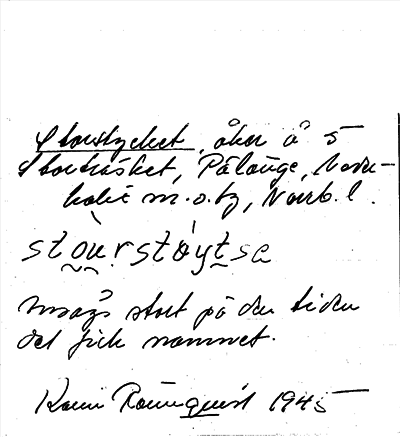 Storstycket, åker å 5
Storträsket, Pålänge, Neder-
kalix m.o.tg, Norrb. l.
stòu̯rstǿyt̯sa
Ansågs stort på den tiden
det fick namnet.
Karin Rönnquist 1945